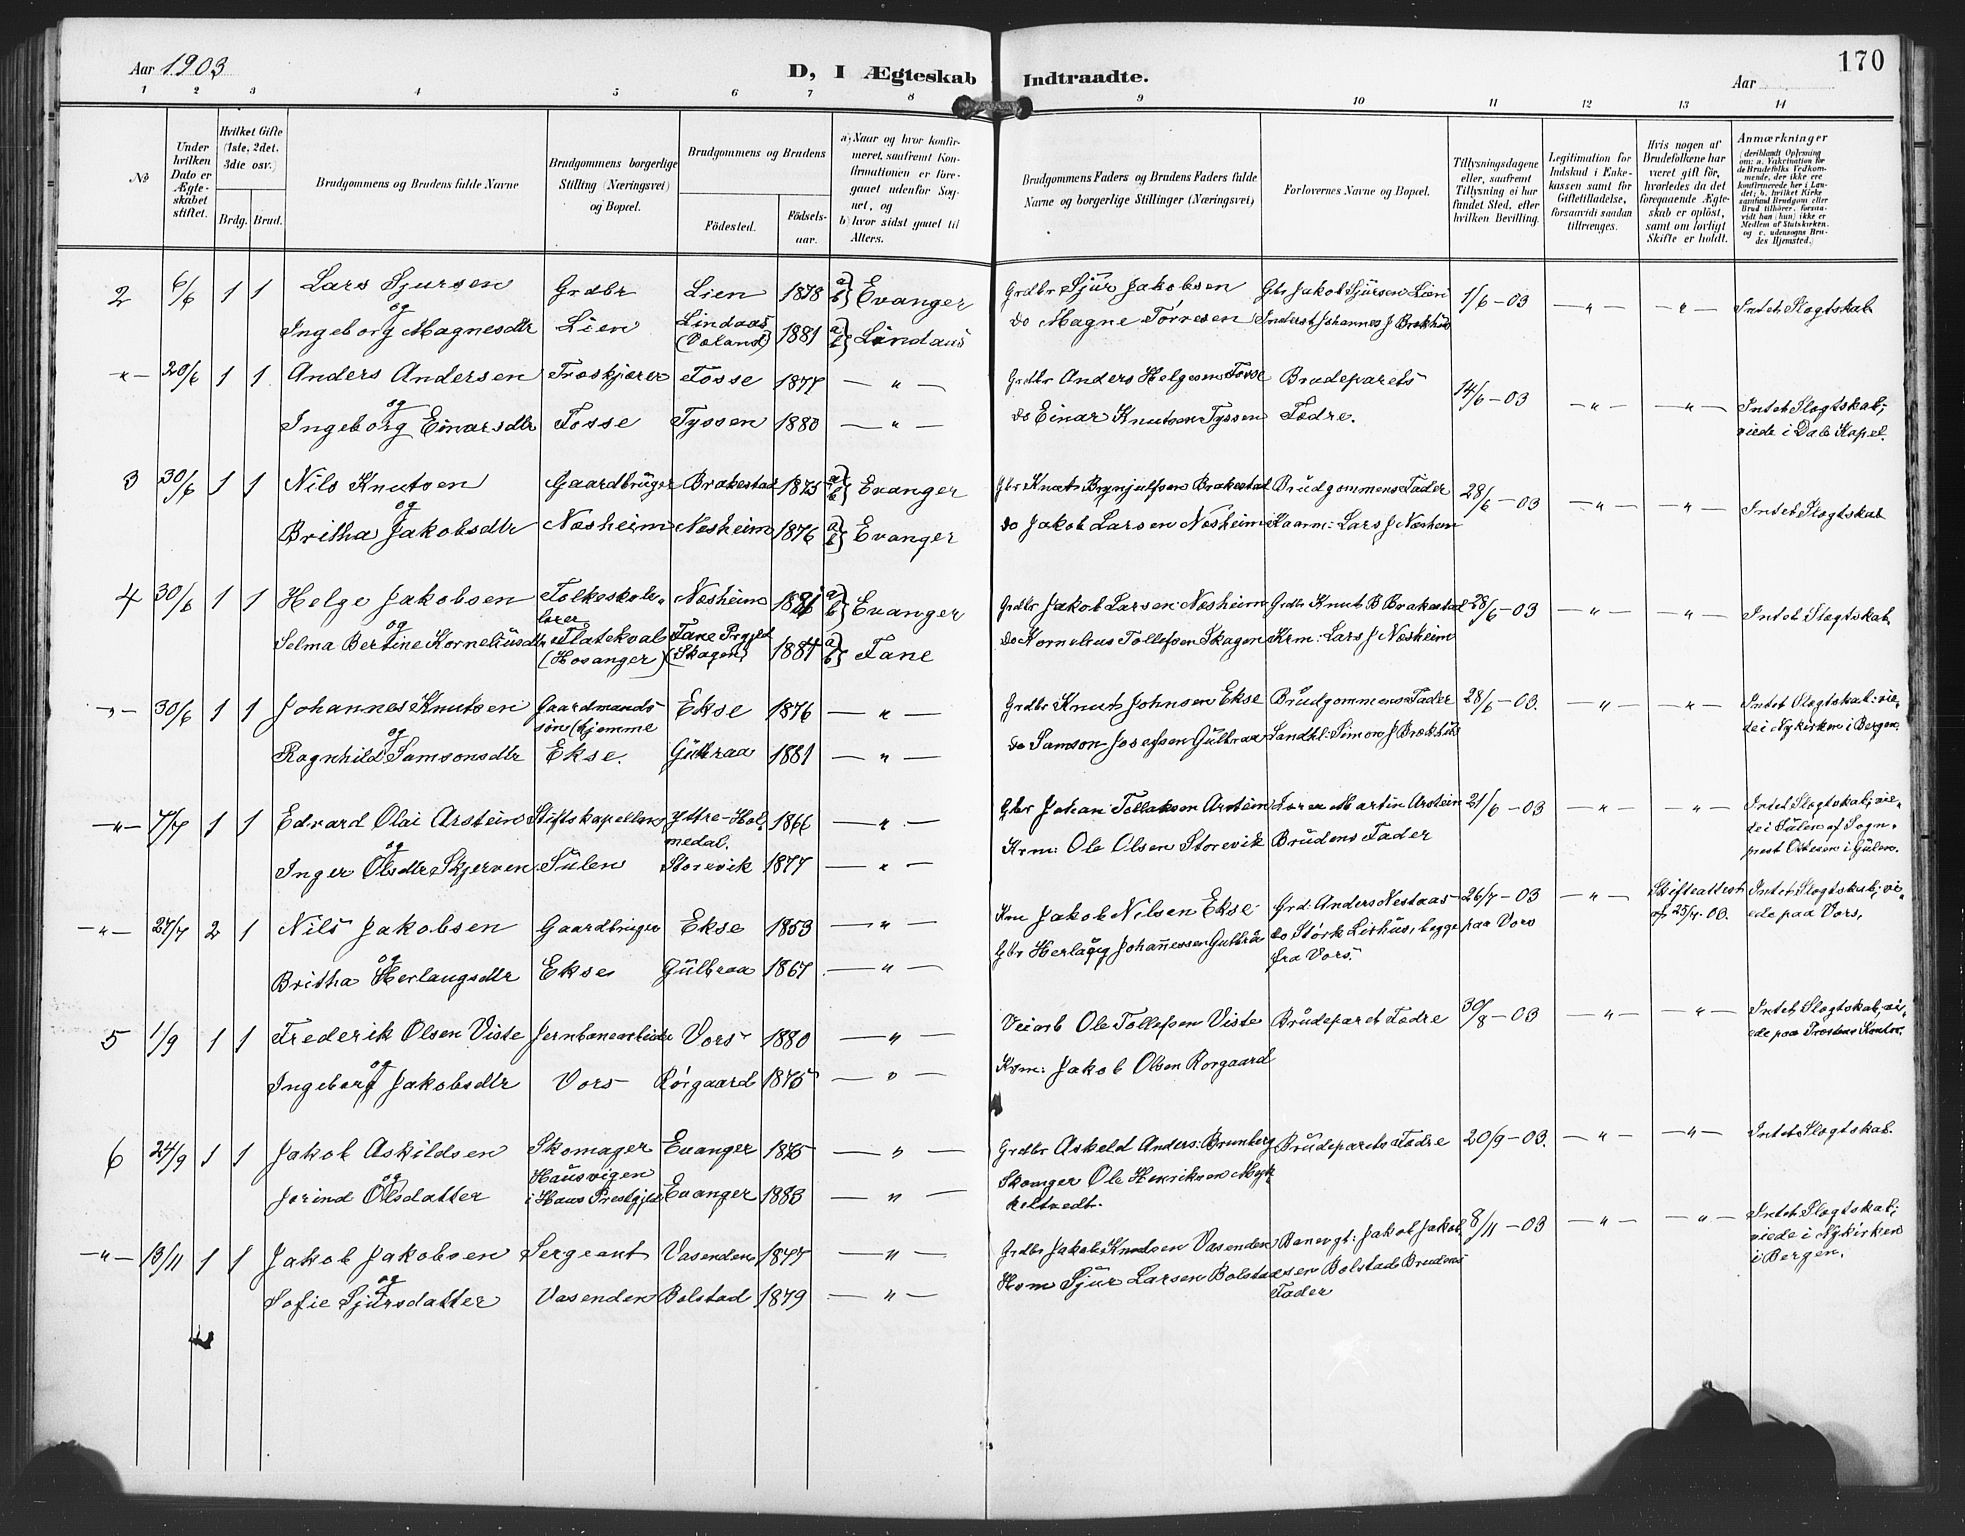 Aar 1903
D, I Ægteskab Indtraadte.
Aar
170
1 2 3 4 5 6 7 8 9 10 11 12 13 14
No
Under hvilken Dato er Ægteskabet stiftet.
Hvilket Gifte (1ste, 2det, 3die osv.)
Brdg. Brud.
Brudgommens og Brudens fulde Navne
Brudgommens borgerlige Stilling (Næringsvei) og Bopæl.
Brudgommens og Brudens
Fødested.
Fødselsaar.
a) Naar og hvor konfirmeret, saafremt Konfirmationen er foregaaet udenfor Sognet, og
b) hvor sidst gaaet til Alters.
Brudgommens Faders og Brudens Faders fulde Navne og borgerlige Stillinger (Næringsvei)
Forlovernes Navne og Bopæl.
Tillysningsdagene eller, saafremt Tillysning ei har fundet Sted, efter hvilken Bevilling.
Legitimation for Indskud i Enkekassen samt for Giftetilladelse, forsaavidt saadan tiltrænges.
Hvis nogen af Brudefolkene har været gift før, hvorledes da det foregaaende Ægteskab er opløst, samt om lovligt Skifte er holdt.
Anmærkninger (deriblandt Oplysning om: a. Vakcination for de Brudefolks Vedkommende, der ikke ere konfirmerede her i Landet; b. hvilket Kirkesamfund Brudgom eller Brud tilhører, forsaavidt han (hun) ikke er Medlem af Statskirken, og c. udensogns Brudes Hjemsted.)
2 6/6 1 1 Lars Sjursen Grdbr Lien 1878 a) b) Evanger Grdbr Sjur Jakobsen Gbr Jakob Sjursen Lien 1/6-03 —„— „ Intet Slægtskab
og
Ingeborg Magnesdtr Lien Lindaas (Væland) 1881 a) b) Lindaas do Magne Torvesen Inderst Johannes J Brækhus
—„— 20/6 1 1 Anders Andersen Træskjærer Fosse 1877 —„— Grdbr Anders Helgesen Fosse Brudeparets 14/6-03 —„— —„— Intet Slægtskab;
og
Ingeborg Einarsdtr Fosse Tyssen 1880 —„— do Einar Knutsen Tyssen Fædre. viede i Dale Kapel.
3 30/6 1 1 Nils Knutsen Gaardbruger Brakestad 1875 a) b) Evanger Gbr Knut Brynjulfsen Brakestad Brudgommens Fader 28/6-03 —„— „ Intet Slægtskab
og
Britha Jakobsdtr Næsheim Næsheim 1876 a) b) Evanger do Jakob Larsen Næsheim Kaarm: Lars J Næsheim
4 30/6 1 1 Helge Jakobsen Folkeskolelærer Næsheim a) b) Evanger Grdbr Jakob Larsen Næsheim Grdbr Knut B Brakestad 28/6-03 —„— „ Intet Slægtskab
og
Selma Bertine Korneliusdtr Flatekval (Hosanger) Fane Prgjld (Skagen) 1884 a) b) Fane do Kornelius Tollefsen Skagen Krm: Lars J Næsheim
—„— 30/6 1 1 Johannes Knutsen Gaardmandssøn (hjemme Ekse 1876 —„— Grdbr Knut Johnsen Ekse Brudgommens Fader 28/6-03. —„— „ Intet Slægtskab: viede i Nykirken i Bergen.
og
Ragnhild Samsonsdtr Ekse. Gulbraa 1881 —„— do Samson Josefsen Gulbraa Landhl: Simon J Brækhus
—„— 7/7 1 1 Edvard Olai Arstein Stiftskapellan Ytre-Holmedal. 1866 —„— Gbr Johan Tollaksen Arstein Martin Arstein 21/6-03 —„— —„— Intet Slægtskab; viede i Sulen af Sognprest Ottesen i Gulen.
og
Inger Olsdtr Skjerven Sulen Storevik 1877 —„— Krm: Ole Olsen Storevik Brudens Fader
—„— 27/7 2 1 Nils Jakobsen Gaardbruger Ekse 1853 —„— Krm Jakob Nilsen Ekse Grd: Anders Nestaas 26/7-03 paa Vors —„— Skifteattest af 25/4.00. Intet Slægtskab; viede paa Vors,
og
Britha Herlaugsdtr Ekse Gulbraa 1867 —„— Gbr Herlaug Johannessen Gulbraa do Størk Lirhus, begge fra Vors.
5 1/9 1 1 Frederik Olsen Viste Jernbanearbeider Vors 1880 —„— Veiarb Ole Tollefsen Viste Brudeparet Fædre 30/8-03 —„— —„— Intet Slægtskab, viede paa Prestens Kontor.
og
Ingeborg Jakobsdtr Vors Rørgaard 1875 —„— Krm: Jakob Olsen Rorgaard
6 24/9 1 1 Jakob Askildsen Skomager Evanger 1875 —„— Grdbr Askeld Anders: Brunborg Brudeparets Fædre 20/9-03. —„— —„— Intet Slægtskab.
og
Jorind Olsdatter Hausvigen i Haus Prestgjeld Evanger 1883 —„— Skomger Ole Henriksen Mykkeltvedt.
—„— 13/11 1 1 Jakob Jakobsen Sergeant Vasenden 1877 —„— Grdbr Jakob Knudsen Vasenden Banevgt: Jakob Jakobsen Bolstad 8/11-03 —„— —„— Intet Slægtskab; viede i Nykirken i Bergen.
og
Sofie Sjursdatter Vasenden Bolstad 1879 —„— Hsm Sjur Larsen Bolstad Brudens Fader